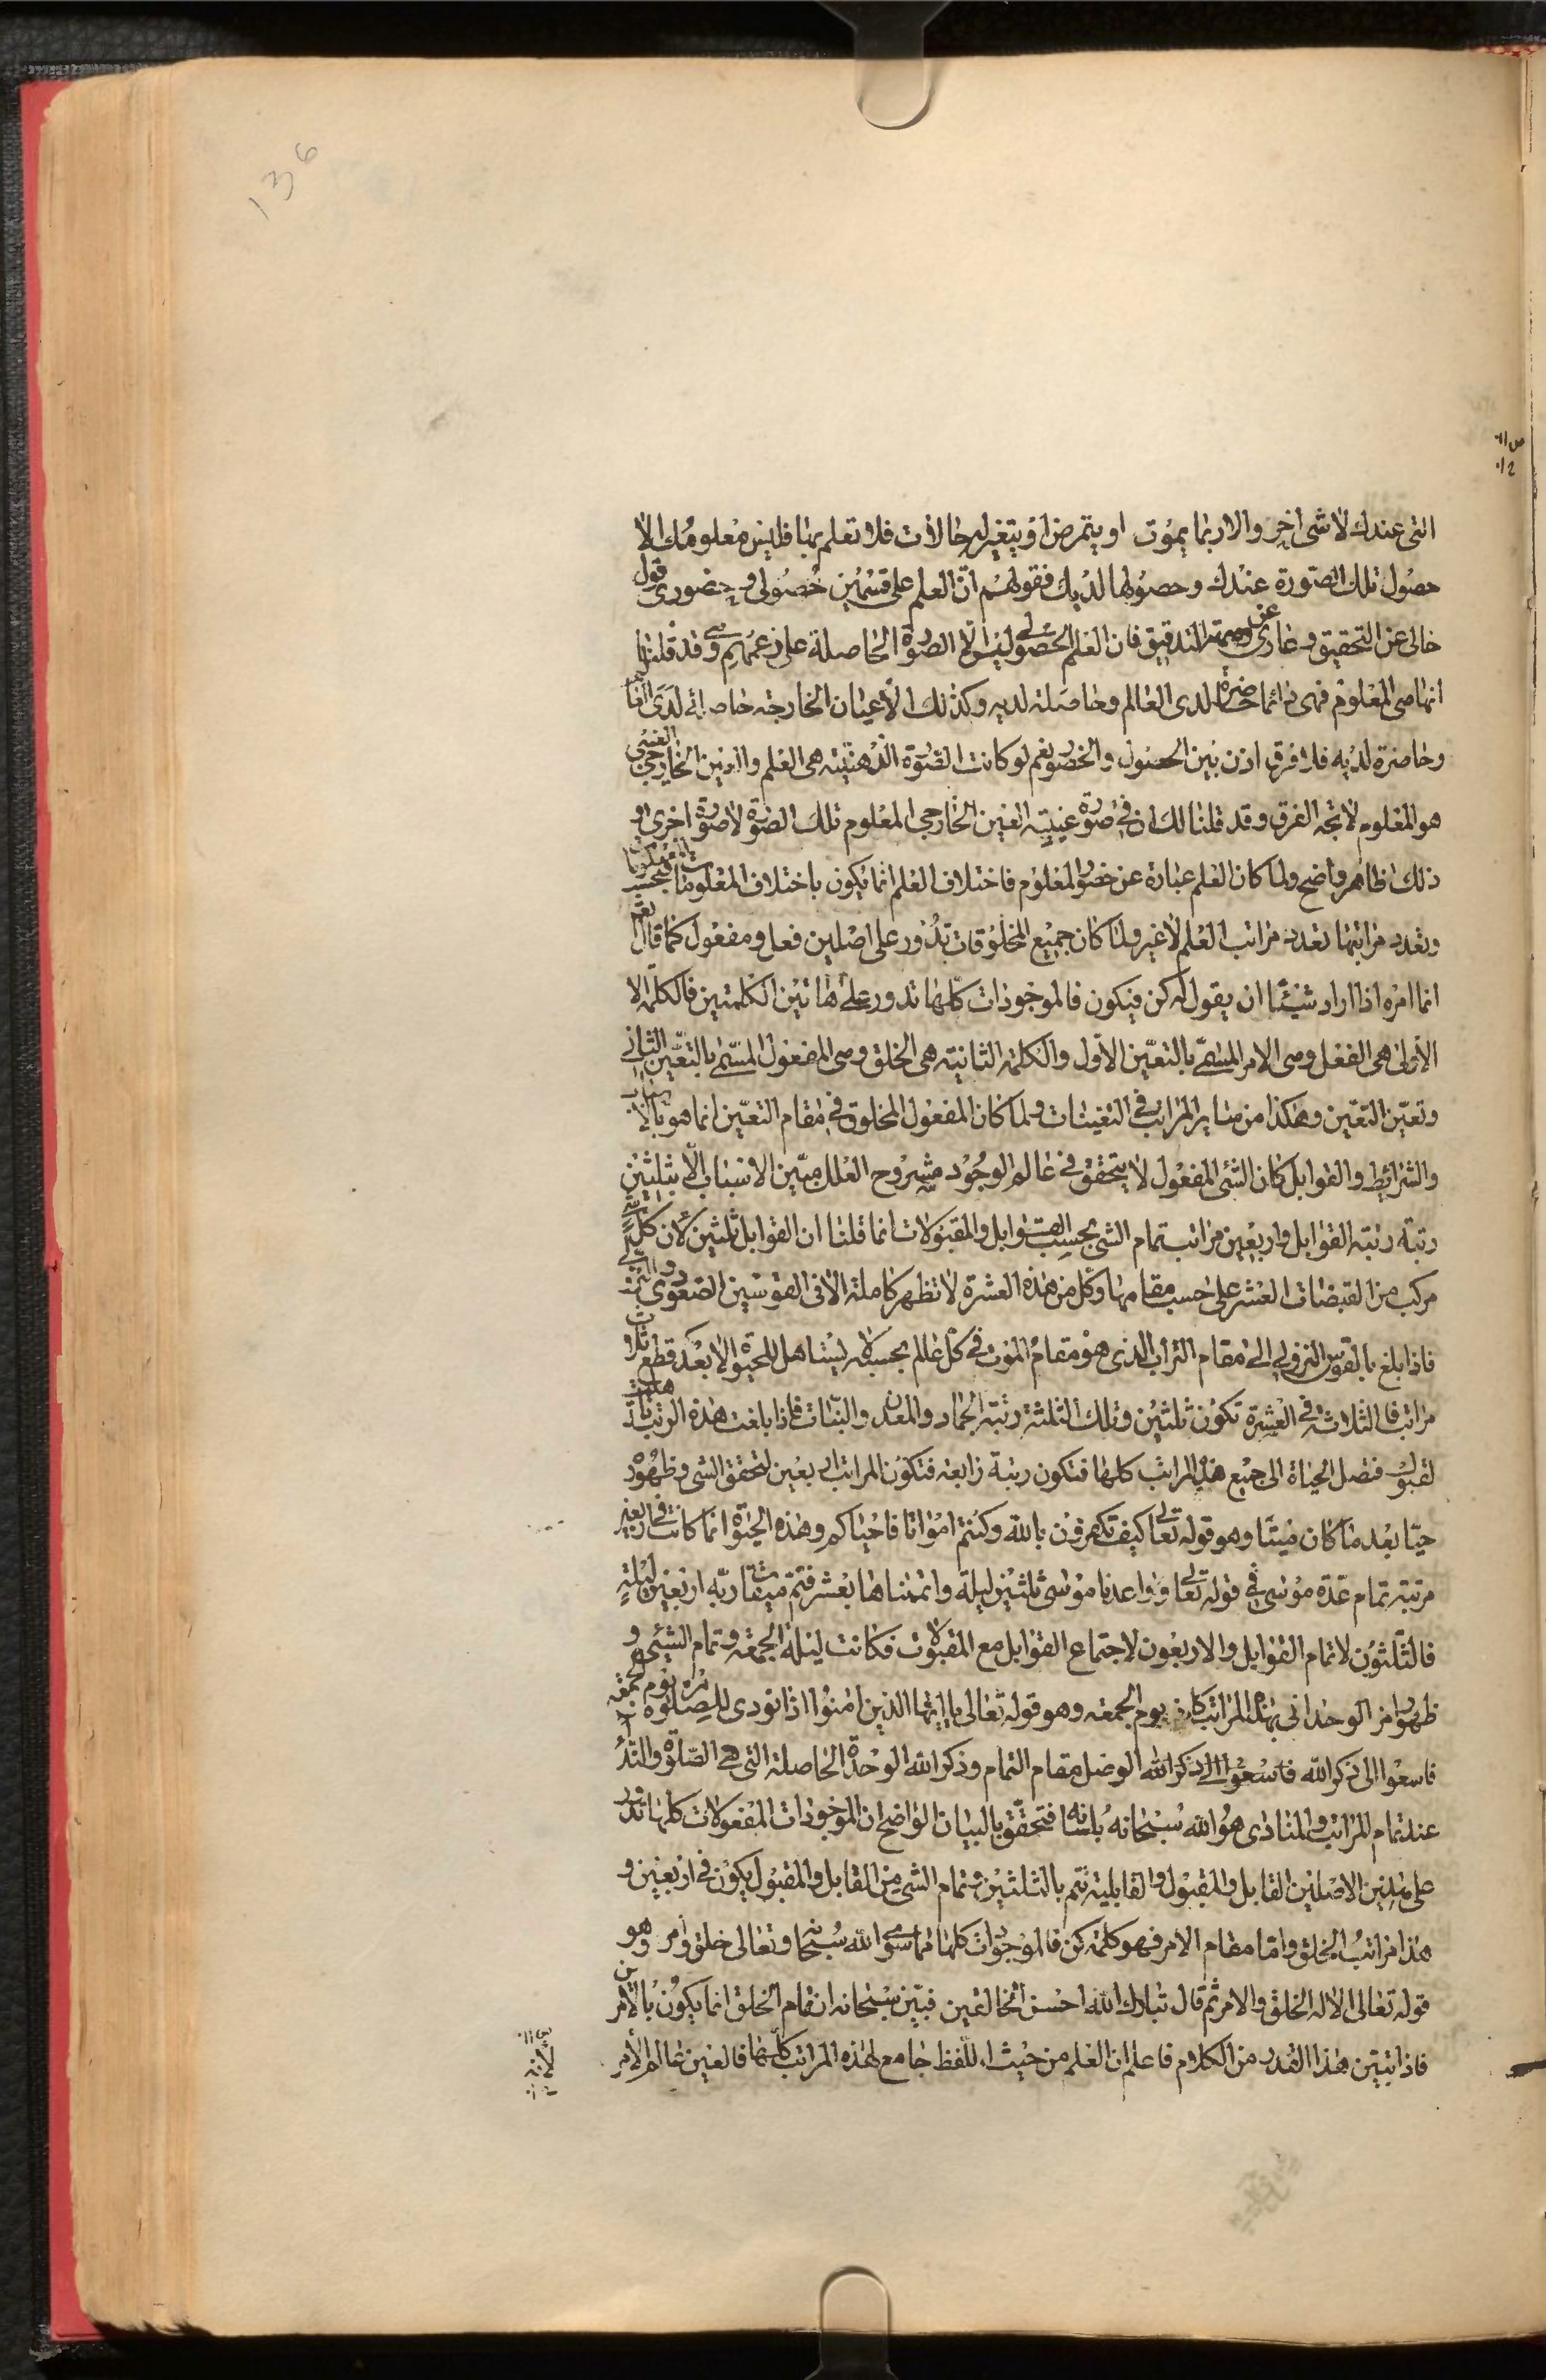 136
التی عندك لا شی اخر والا ربما یموت او یتمرض او یتغیر له حالات فلا تعلم بها فلیس معلومك الا
حصول تلك الصورة عندك وحصولها لدیك فقولهم ان العلم علی قسمین حصولی و حضوری قول
خالی عن التحقیق و عاری عن وصمة التدقیق فان العلم الحصولی لیس الا الصورة الحاصلة علی زعمهم وقد قلنا
انها هی المعلوم فهی دائما حاضرة لدی العالم وحاصلة لدیه وكذلك الاعیان الخارجه حاصلة لدی العا
وحاضرة لدیه فلا فرق اذن بین الحصول والحضور نعم لو كانت الصورة الذهنیته هی العلم والعین الخارجی
هو المعلوم لاتجه الفرق وقد قلنا لك ان فی صورة غیبیته العین الخارجی المعلوم تلك الصورة لا صورة اخری و
ذلك ظاهر واضح ولما كان العلم عبارة عن حضور المعلوم فاختلاف العلم انما یكون باختلاف المعلومات فبحسب
وتعدد مراتبها تعدد مراتب العلم لا غیر ولما كان جمیع المخلوقات تدور علی اصلین فعل ومفعول كما قال
انما امره اذا اراد شیئا ان یقول له كن فیكون فالموجودات كلها تدور علی هاتین الكلمتین فالكلمة الا
الاولی هی الفعل وهی الامر المسمی بالتعین الاول والكلمة الثانیة هی الخلق وهی المفعول المسمی بالتعین الثانی
وتعین التعین وهكذا من سایر المراتب فی التعینات ولما كان المفعول المخلوق فی مقام التعین انما هو بالا
والشرائط والقوابل كان الشئ المفعول لا یتحقق فی عالم الوجود مشروح العلل مبین الاسباب الا بثلثین
رتبة رتبه القوابل واربعین مراتب تمام الشئ بحسب القوابل والمقبولات انما قلنا ان القوابل ثلثین لان كل
مركب من القبضات العشر علی حسب مقامها وكل من هذه العشرة لا تظهر كاملة الا فی القوسین الصعودی والنزولی
فاذا بلغ بالقوس النزولی الی مقام التراب الذی هو مقام الموت فی كل عالم بحسبه لا یستاهل للحیوة الا بعد قطع ثلاث
مراتب فالثلاثة فی العشرة تكون ثلثین وتلك الثلثة رتبة الجماد والمعدن والنبات فاذا بلغت هذه الرتب تاهلت
لقبول فتصل الحیاة الی جمیع هذه المراتب كلها فتكون رتبة رابعه فتكون المراتب اربعین لتحقق الشئ وظهوره
حیا بعد ما كان میتا وهو قوله تعالی كیف تكفرون بالله وكنتم امواتا فاحیاكم وهذه الحیوة انما كانت فی اربعین
مرتبه تمام عدة موسی فی قوله تعالی وواعدنا موسی ثلثین لیلة واتممناها بعشر فتم میقات ربه اربعین لیلة
فالثلثون لاتمام القوابل والاربعون لاجتماع القوابل مع المقبولات فكانت لیلة الجمعه وتمام الشئی و
ظهور امر الوحدانی بهذه المراتب كان یوم الجمعه وهو قوله تعالی یا ایها الذین امنوا اذا نودی للصلوة من یوم الجمعه
فاسعوا الی ذكر الله فاسعوا الی ذكر الله الوصل مقام التمام وذكر الله الوحدة الحاصلة التی هی الصلوة والنداء
عند تمام المراتب والمنادی هو الله سبحانه بلسانه فتحقق بالبیان الواضح ان الموجودات المفعولات كلها تدور
علی هذین الاصلین القابل والمقبول والقابلیة تتم بالثلثین وتمام الشئ من القابل والمقبول یكون فی اربعین و
هذا مراتب الخلق واما مقام الامر فهو كلمة كن فالموجودات كلها مما سوی الله سبحانه وتعالی خلق وامر وهو
قوله تعالی الا له الخلق والامر ثم قال تبارك الله احسن الخالقین فبین سبحانه ان تمام الخلق انما یكون بالامر
فاذا تبین هذا القدر من الكلام فاعلم ان العلم من حیث اللفظ جامع لهذه المراتب كلها فالعین عالم الامر
لانه